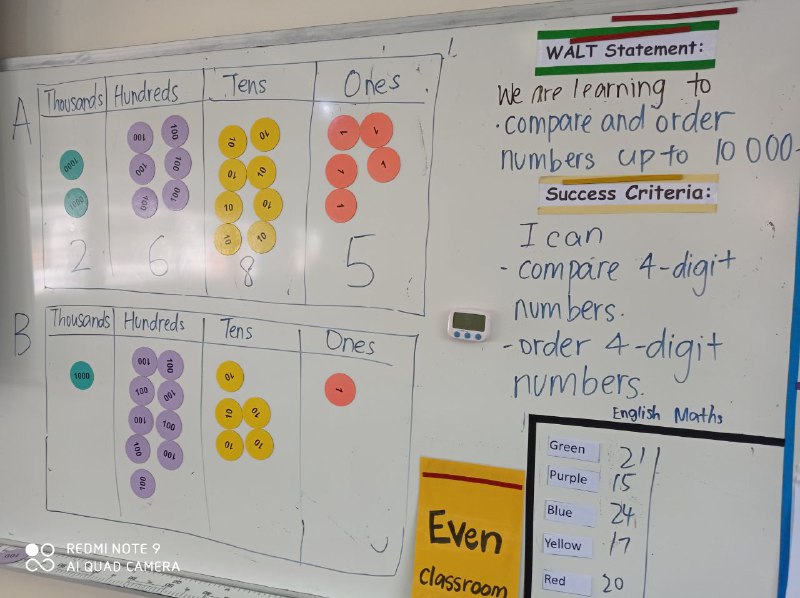 A
Thousands Hundreds Tens Ones
1000 100 100 10 10 1 1
100 100 10 10 1 1
1000 100 100 10 10 1
10 10
2 6 8 5
B
Thousands Hundreds Tens Ones
1000 100 100 10 1
100 100 10 10
100 100 10 10
100 100
100
WALT Statement:
We are learning to
·compare and order
numbers up to 10 000.
Success Criteria:
I can
- compare 4-digit
numbers.
- order 4-digit
numbers.
English Maths
Green 21
Purple 15
Blue 24
Yellow 17
Red 20
Even
classroom
REDMI NOTE 9
AI QUAD CAMERA